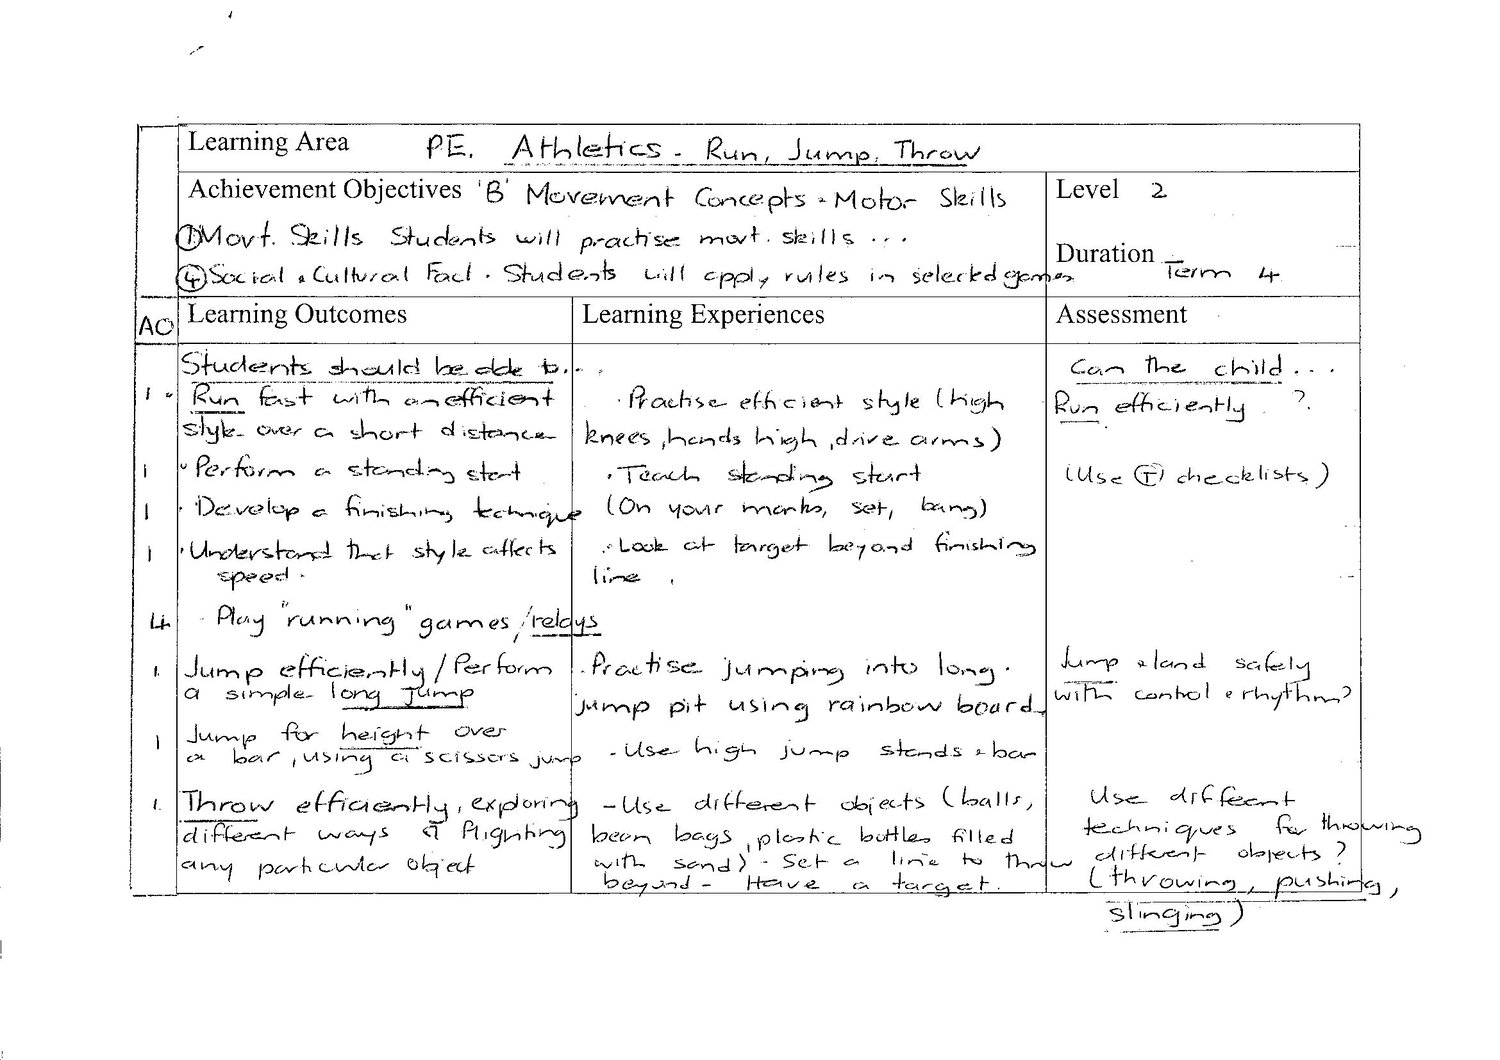 Learning Area PE. Athletics - Run, Jump, Throw
Achievement Objectives 'B' Movement Concepts & Motor Skills
Level 2
① Movt. Skills Students will practise movt. skills ...
④ Social & Cultural Fact. Students will apply rules in selected games
Duration - Term 4
AO
Learning Outcomes
Learning Experiences
Assessment
Students should be able to...
1 · Run fast with an efficient
style over a short distance
1 · Perform a standing start
1 · Develop a finishing technique
1 · Understand that style affects
speed.
4 · Play "running" games/relays
1. Jump efficiently/Perform
a simple long jump
1 Jump for height over
a bar, using a scissors jump
1. Throw efficiently, exploring
different ways of flighting
any particular object
· Practise efficient style (high
knees, hands high, drive arms)
· Teach standing start
(On your marks, set, bang)
· Look at target beyond finishing
line.
· Practise jumping into long
jump pit using rainbow board.
- Use high jump stands & bar
- Use different objects (balls,
bean bags, plastic bottles filled
with sand) - Set a line to throw
beyond - Have a target.
Can the child...
Run efficiently ?
(Use Ⓣ checklists)
Jump & land safely
with control & rhythm?
Use differnt
techniques for throwing
different objects?
(throwing, pushing,
slinging)